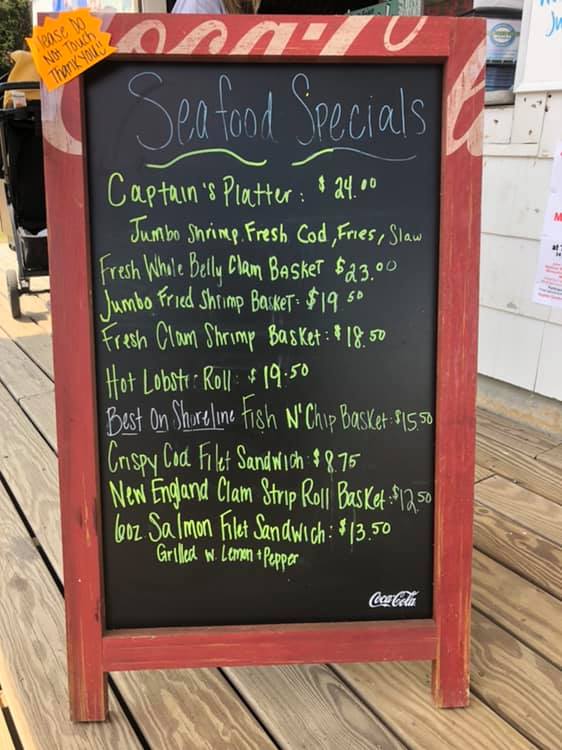 Please Do
Not Touch
Thank You!!
Coca-C
Seafood Specials
Captain's Platter: $24.00
Jumbo Shrimp, Fresh Cod, Fries, Slaw
Fresh Whole Belly Clam Basket $23.00
Jumbo Fried Shrimp Basket: $19.50
Fresh Clam Shrimp Basket: $18.50
Hot Lobstr Roll: $19.50
Best On Shoreline Fish N' Chip Basket: $15.50
Crispy Cod Filet Sandwich: $8.75
New England Clam Strip Roll Basket: $12.50
6oz Salmon Filet Sandwich: $13.50
Grilled w Lemon + Pepper
Coca-Cola